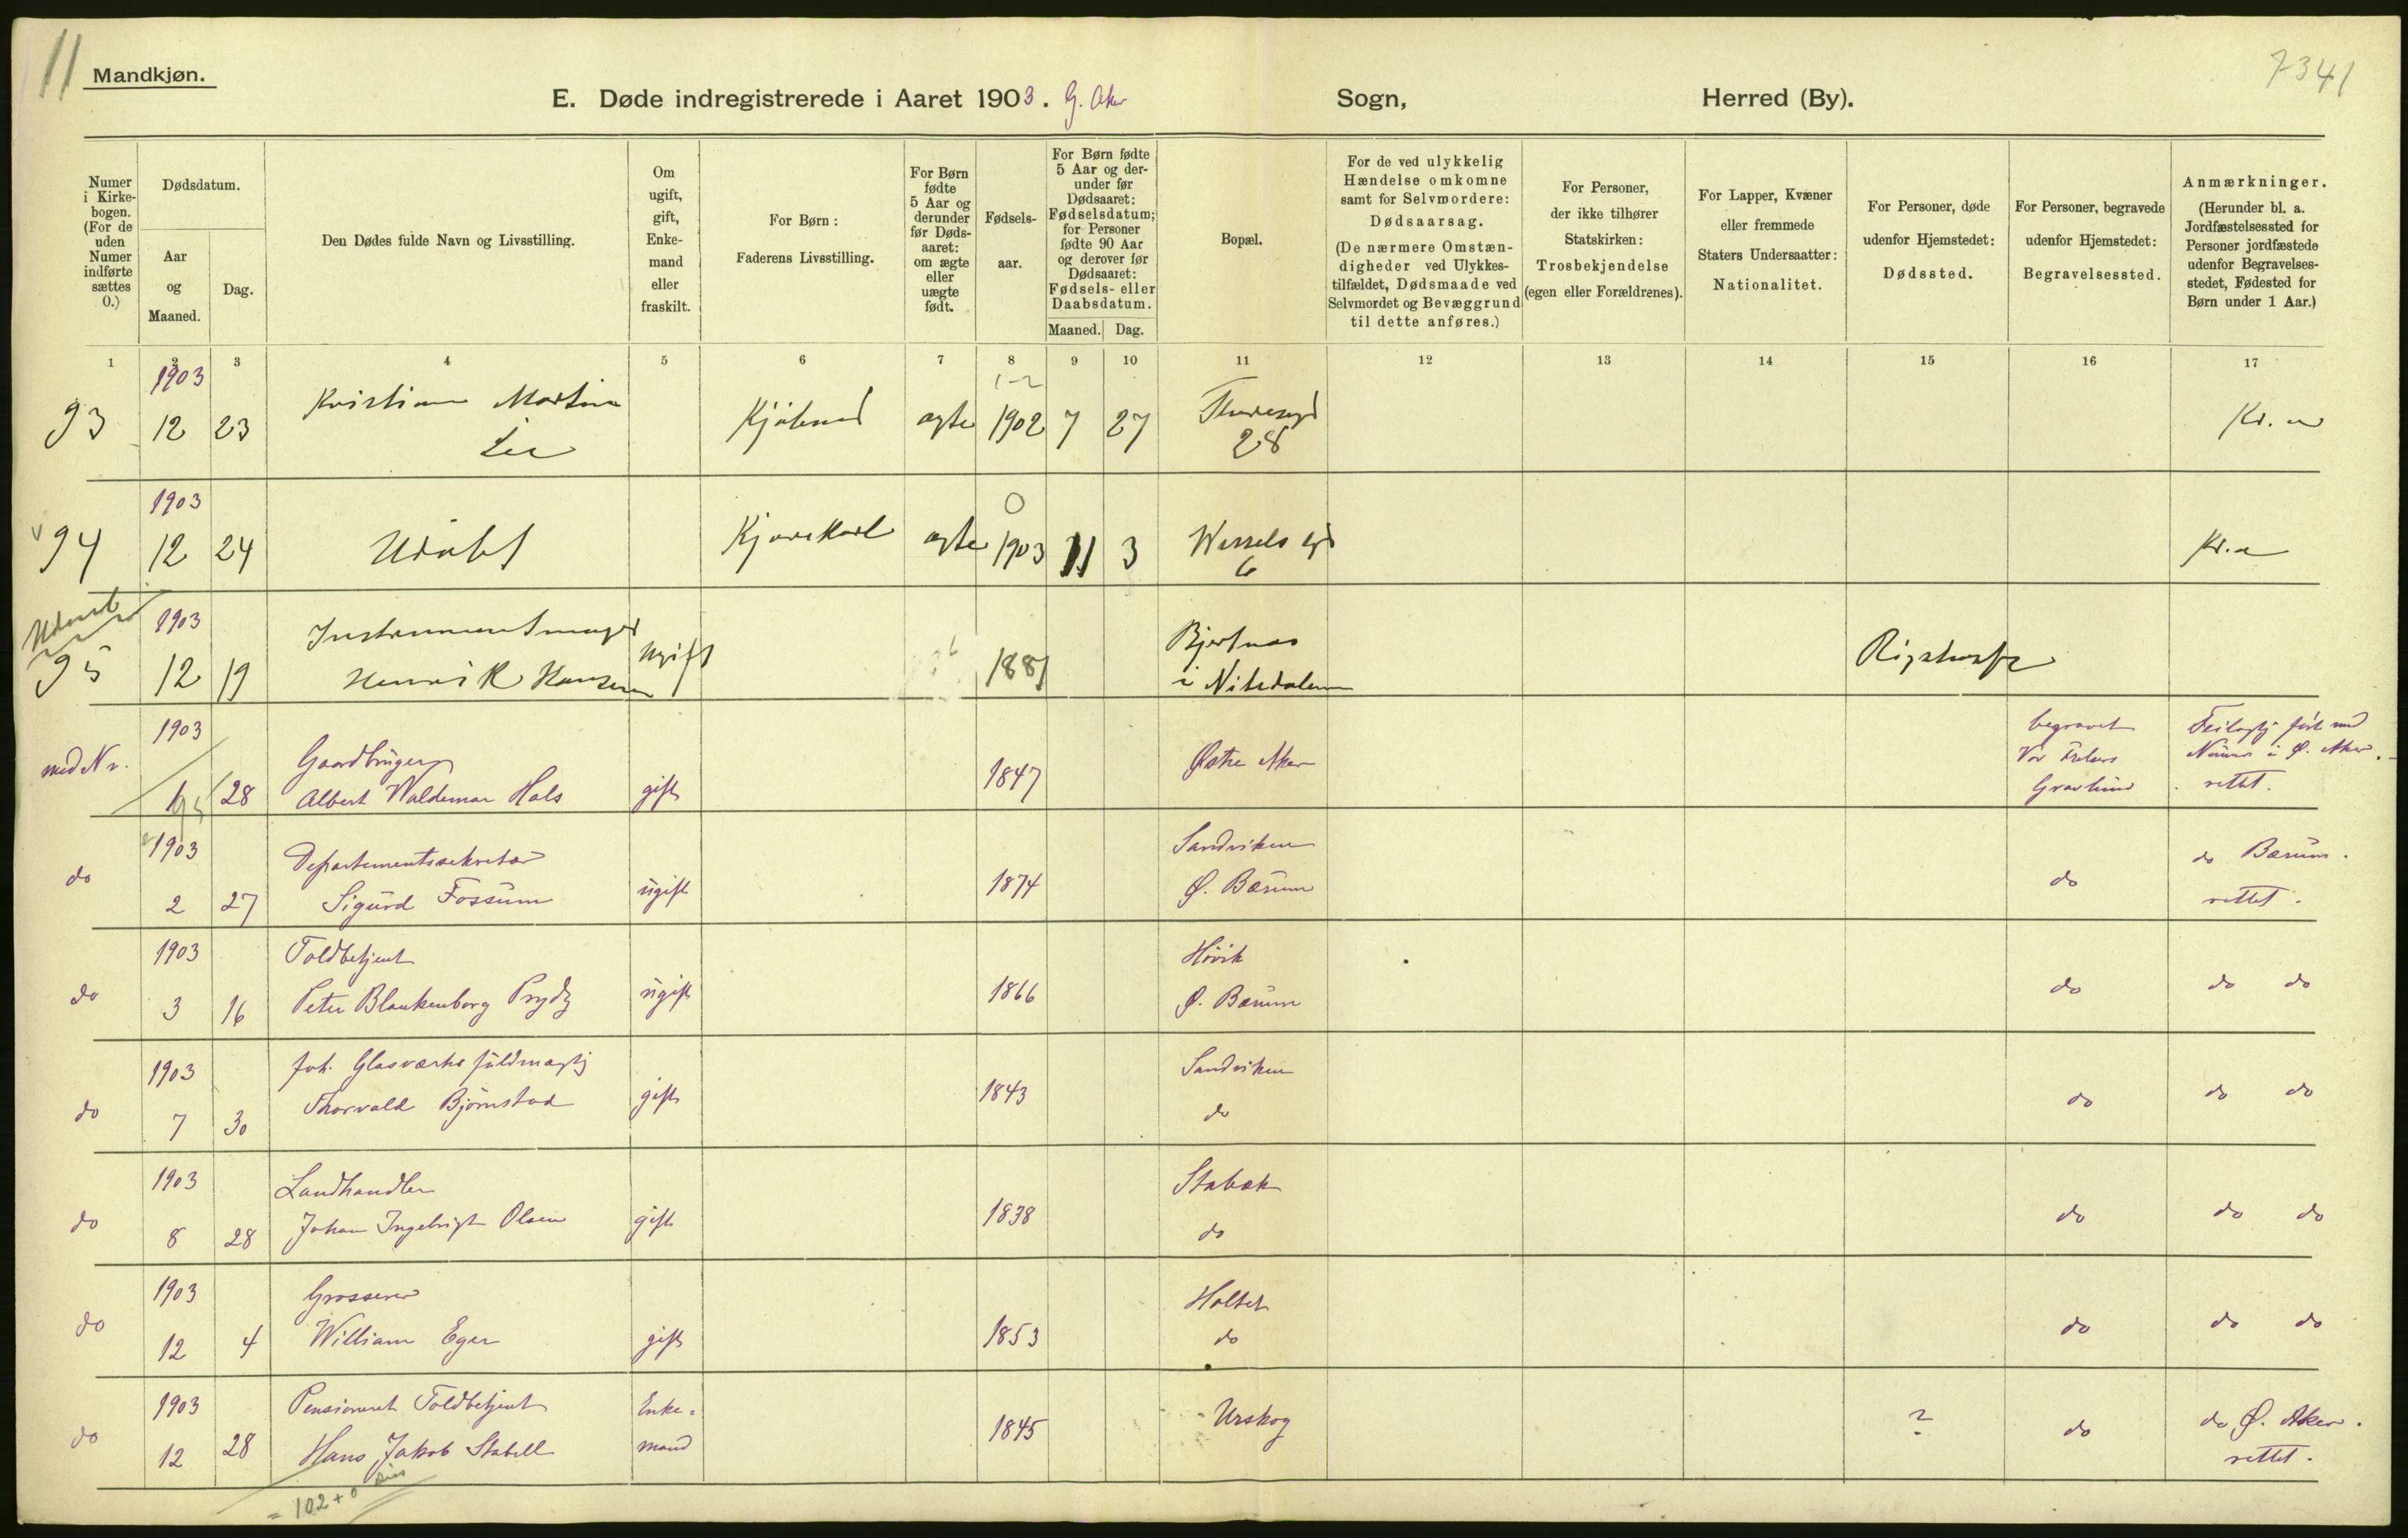 11
Mandkjøn.
7341
E. Døde indregistrerede i Aaret 1903. G. Aker Sogn, Herred (By).
Numer i Kirke-bogen. (For de uden Numer indførte sættes 0.)
Dødsdatum.
Aar og Maaned.
Dag.
Den Dødes fulde Navn og Livsstilling.
Om ugift, gift, Enke-mand eller fraskilt.
For Børn: Faderens Livsstilling.
For Børn fødte 5 Aar og derunder før Døds-aaret: om ægte eller uægte født.
Fødsels-aar.
For Børn fødte 5 Aar og der-under før Dødsaaret: Fødselsdatum; for Personer fødte 90 Aar og derover før Dødsaaret: Fødsels- eller Daabsdatum.
Maaned. Dag.
Bopæl.
For de ved ulykkelig Hændelse omkomne samt for Selvmordere: Dødsaarsag. (De nærmere Omstæn-digheder ved Ulykkes-tilfældet, Dødsmaade ved Selvmordet og Bevæggrund til dette anføres.)
For Personer, der ikke tilhører Statskirken: Trosbekjendelse (egen eller Forældrenes).
For Lapper, Kvæner eller fremmede Staters Undersaatter: Nationalitet.
For Personer, døde udenfor Hjemstedet: Dødssted.
For Personer, begravede udenfor Hjemstedet: Begravelsessted.
Anmærkninger. (Herunder bl. a. Jordfæstelsessted for Personer jordfæstede udenfor Begravelses-stedet, Fødested for Børn under 1 Aar.)
1 2 3 4 5 6 7 8 9 10 11 12 13 14 15 16 17
1903 1-2
93 12 23 Kristian Martin ægte 1902 7 27 28 Kr.a
Lie
1903 0
94 12 24 Udøbt Kjørekarl ægte 1903 11 3 Wessels gd 6 Kr.a
1903 Instrumentmager Bjertnæs
95 12 19 Henrik Hansen ugift 1881 i Nitedalen Rigshosp
1903 Gaardbruger begravet Feilagtig ført med
med Nr. 1 28 Albert Waldemar Hals gift 1847 Østre Aker Vor Frelsers Numer i Ø. Aker.
95 Gravlund rettet.
1903 Departementssekretær Sandviken do Bærum.
do 2 27 Sigurd Fossum ugift 1874 Ø. Bærum do rettet.
1903 Toldbetjent Høvik
do 3 16 Peter Blankenborg Prydz ugift 1866 Ø. Bærum do do do
1903 Glasværks fuldmægtig Sandviken
do 7 30 Thorvald Bjørnstad gift 1843 do do do do
1903 Landhandler Stabæk
do 8 28 Johan Ingebrigt Olsen gift 1838 do do do do
1903 Grosserer Holtet
do 12 4 William Eger gift 1853 do do do do
1903 Pensioneret Toldbetjent Enke= Urskog ? do Ø. Aker.
do 12 28 Hans Jakob Stabell mand 1845 do rettet.
= 102 + 0